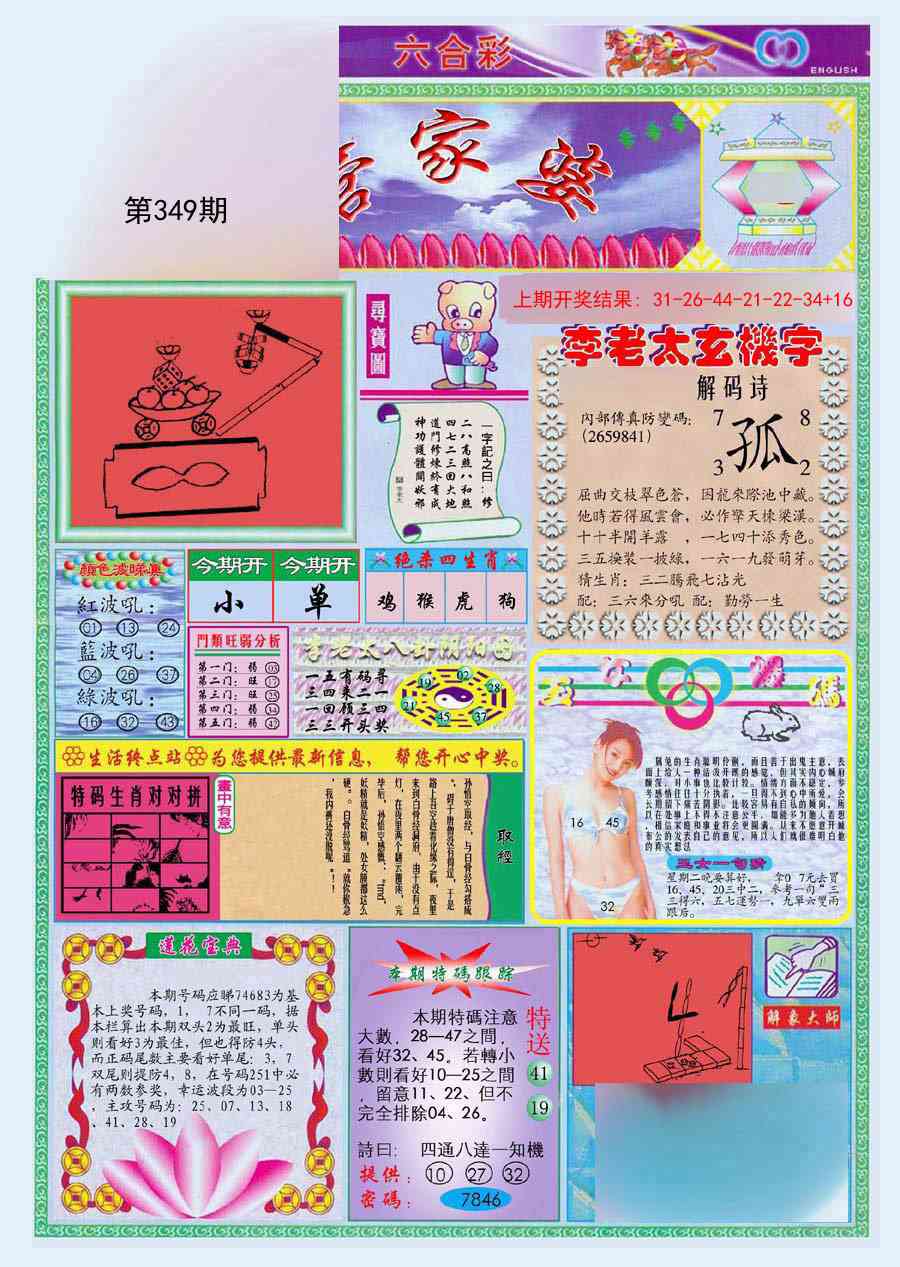 六合彩
ENGLISH
管家婆
第349期
上期开奖结果: 31-26-44-21-22-34+16
尋寶圖
一字記之曰：修
二八高照八和照
四七二三回大地
道門修煉終有成
神功護體閒妖邪
李老太玄機字
解码诗
内部傳真防變碼:
(2659841)
7
8
孤
3
2
屈曲交枝翠色蒼，因龍來際池中藏。
他時若得風雲會，必作擎天棟梁漢。
十十半開羊露　，一七四十添秀色。
三五換裝一披綠，一六一九發萌芽。
猜生肖: 三二腸飛七沾光
配: 三六來分吼 配: 勤勞一生
顏色波睇真
紅波吼:
01 13 24
藍波吼:
04 26 37
綠波吼:
16 32 43
今期开 今期开
小 单
绝杀四生肖
鸡 猴 虎 狗
門類旺弱分析
第一门: 弱 03
第二门: 旺
第三门: 旺
第四门: 弱
第五门: 弱
李老太八卦阴阳图
一五有码寻
三四来二一
一回顾三四
三三开头奖
19 02 28
21 45 37
生活终点站 为您提供最新信息， 帮您开心中奖。
特码生肖对对拼
畫中有意
取經
孙悟空取经，与白骨经勾搭成
，碍于唐僧没有得逞，于是
路上悟空趁着化缘之际，夜里
灯，在夜里两个翻云覆雨，完
毕后，孙悟空感慨，"Tmd,
妖精就是妖精，处女膜都这么
硬。。白骨经骂道"就你猴急
，我内裤还没脱呢。"！！
16 45
32
玉女一句詩
星期二晚要算好， 拿0 7元去買
16、45、20三中二，來考一句"三
三得六，五七運勢一，九單六雙兩
跟后。
蓮花宝典
本期号码应睇74683为基
本上奖号码，1， 7不同一码，据
本栏算出本期双头2为最旺，单头
则看好3为最佳，但也得防4头，
而正码尾数主要看好单尾: 3，7
双尾则提防4，8，在号码251中必
有两数参奖，幸运波段为03—25
，主攻号码为: 25、07、13、18
、41、28、19
本期特碼跟踪
本期特碼注意
大數，28—47之間，
看好32、45。若轉小
數則看好10—25之間
，留意11、22、但不
完全排除04、26。
特送
41
19
詩曰: 四通八達一知機
提供: 10 27 32
密碼: 7846
解象大師